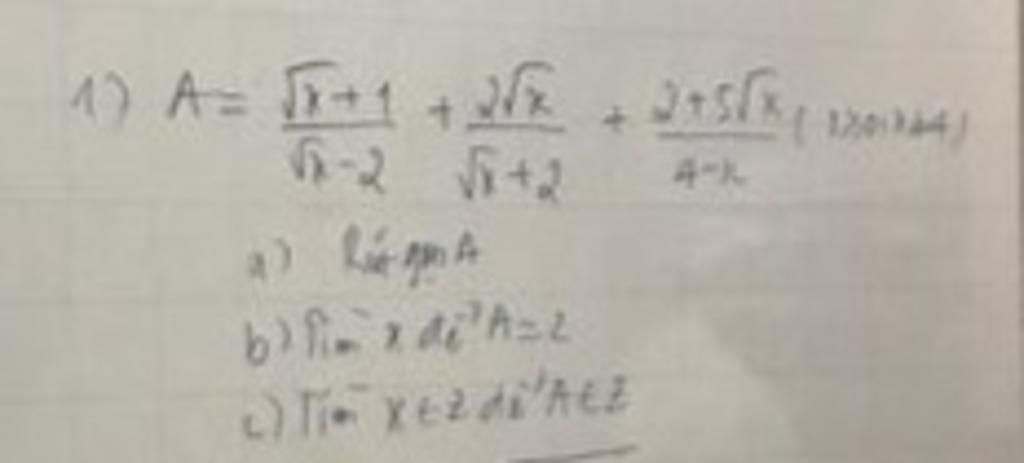 1) A = \frac{\sqrt{x}+1}{\sqrt{x}-2} + \frac{2\sqrt{x}}{\sqrt{x}+2} + \frac{2+5\sqrt{x}}{4-x} (x≥0; x≠4)
a) Rút gọn A
b) Tìm x để A=2
c) Tìm x ∈ Z để A ∈ Z